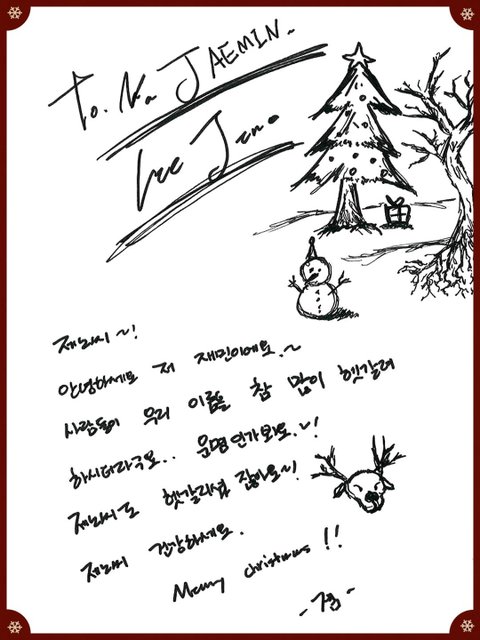 To. Na JAEMIN~
Lee Jeno
제노씨~!
안녕하세요 저 재민이에요.~
사람들이 우리 이름을 참 많이 헷갈려
하시더라구요.. 운명인가봐요.~!
제노씨도 헷갈리셨잖아요~!
제노씨 건강하세요.
Merry christmas !!